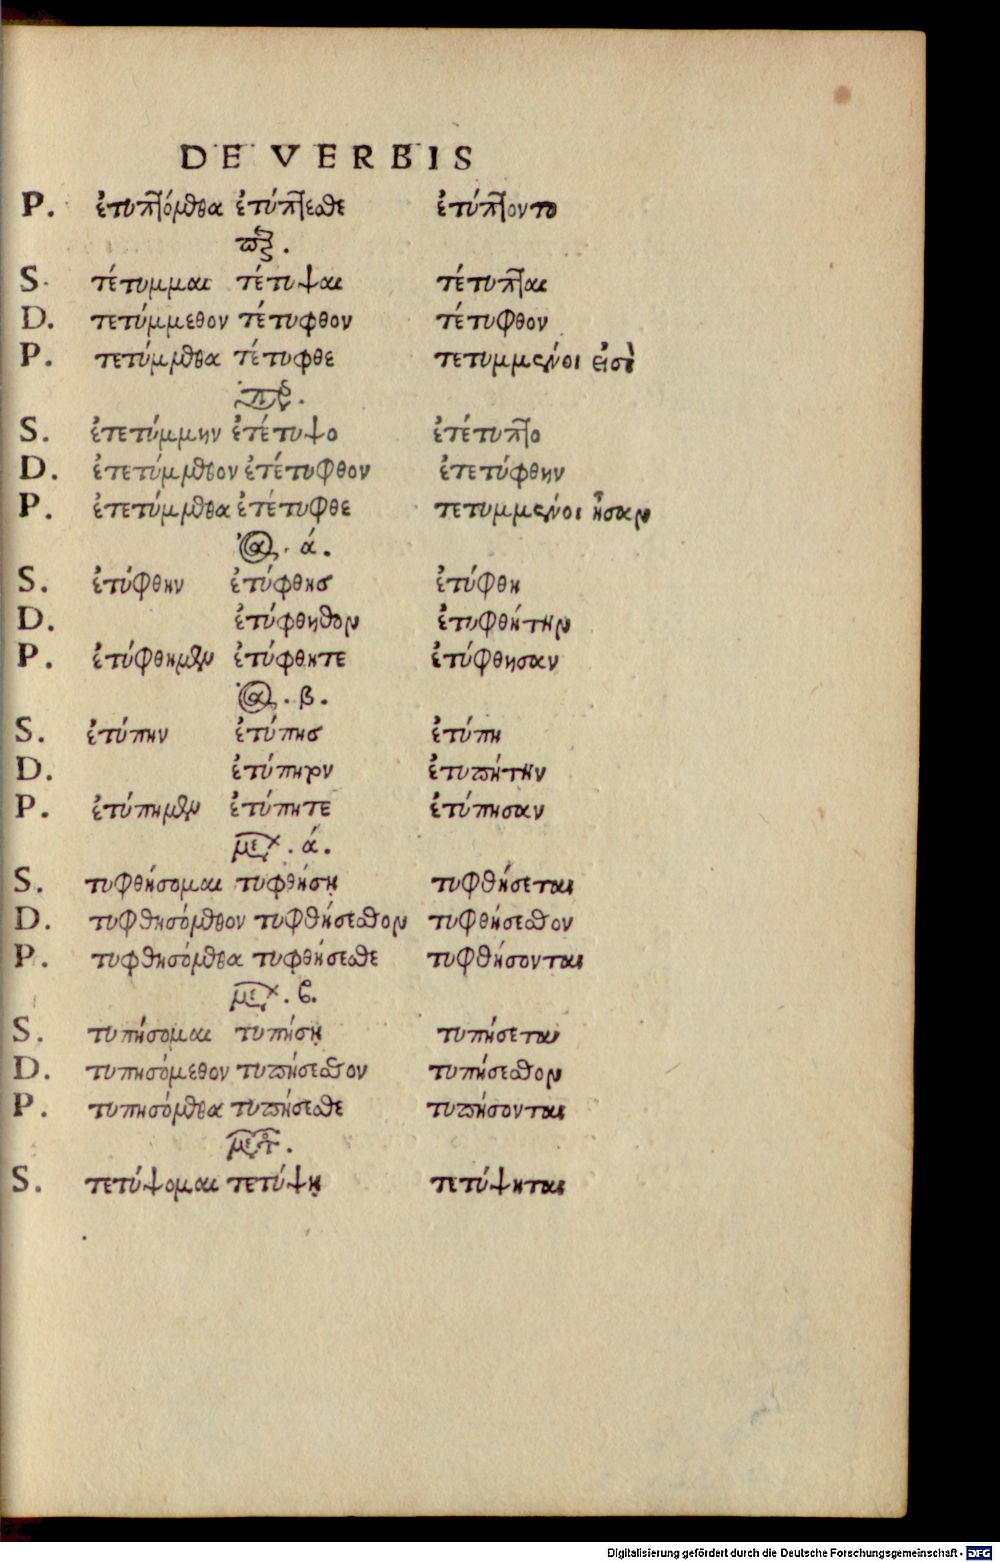 DE VERBIS
P. ἐτυπτόμεθα ἐτύπτεσθε ἐτύπτοντο
S. τέτυμμαι τέτυψαι τέτυπται
D. τετύμμεθον τέτυφθον τέτυφθον
P. τετύμμεθα τέτυφθε τετυμμένοι εἰσὶ
S. ἐτετύμμην ἐτέτυψο ἐτέτυπτο
D. ἐτετύμμεθον ἐτέτυφθον ἐτετύφθην
P. ἐτετύμμεθα ἐτέτυφθε τετυμμένοι ἦσαν
ἀορ. ά.
S. ἐτύφθην ἐτύφθης ἐτύφθη
D. ἐτύφθητον ἐτυφθήτην
P. ἐτύφθημεν ἐτύφθητε ἐτύφθησαν
ἀορ. β.
S. ἐτύπην ἐτύπης ἐτύπη
D. ἐτύπητον ἐτυπήτην
P. ἐτύπημεν ἐτύπητε ἐτύπησαν
μελ. ά.
S. τυφθήσομαι τυφθήσῃ τυφθήσεται
D. τυφθησόμεθον τυφθήσεσθον τυφθήσεσθον
P. τυφθησόμεθα τυφθήσεσθε τυφθήσονται
μελ. β.
S. τυπήσομαι τυπήσῃ τυπήσεται
D. τυπησόμεθον τυπήσεσθον τυπήσεσθον
P. τυπησόμεθα τυπήσεσθε τυπήσονται
S. τετύψομαι τετύψῃ τετύψηται
Digitalisierung gefördert durch die Deutsche Forschungsgemeinschaft - DFG